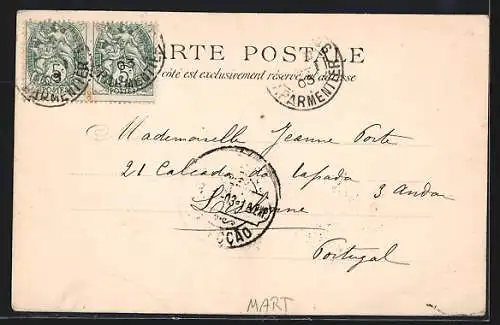 CARTE POSTALE
côté est exclusivement réservé à adresse
PARMENTIER
03
Mademoiselle Jeanne Porte
21 Calcada da Tapada
3 Andar
Lisbonne
Portugal
MART